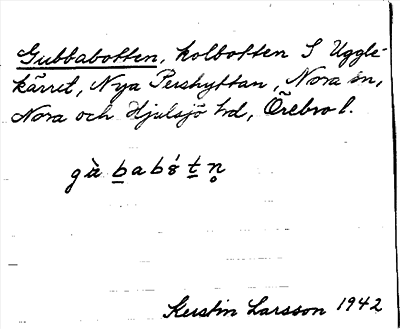 Gubbabotten, kolbotten S Uggle-
kärret, Nya Pershyttan, Nora sn,
Nora och Hjulsjö hd, Örebro l.
Kerstin Larsson 1942